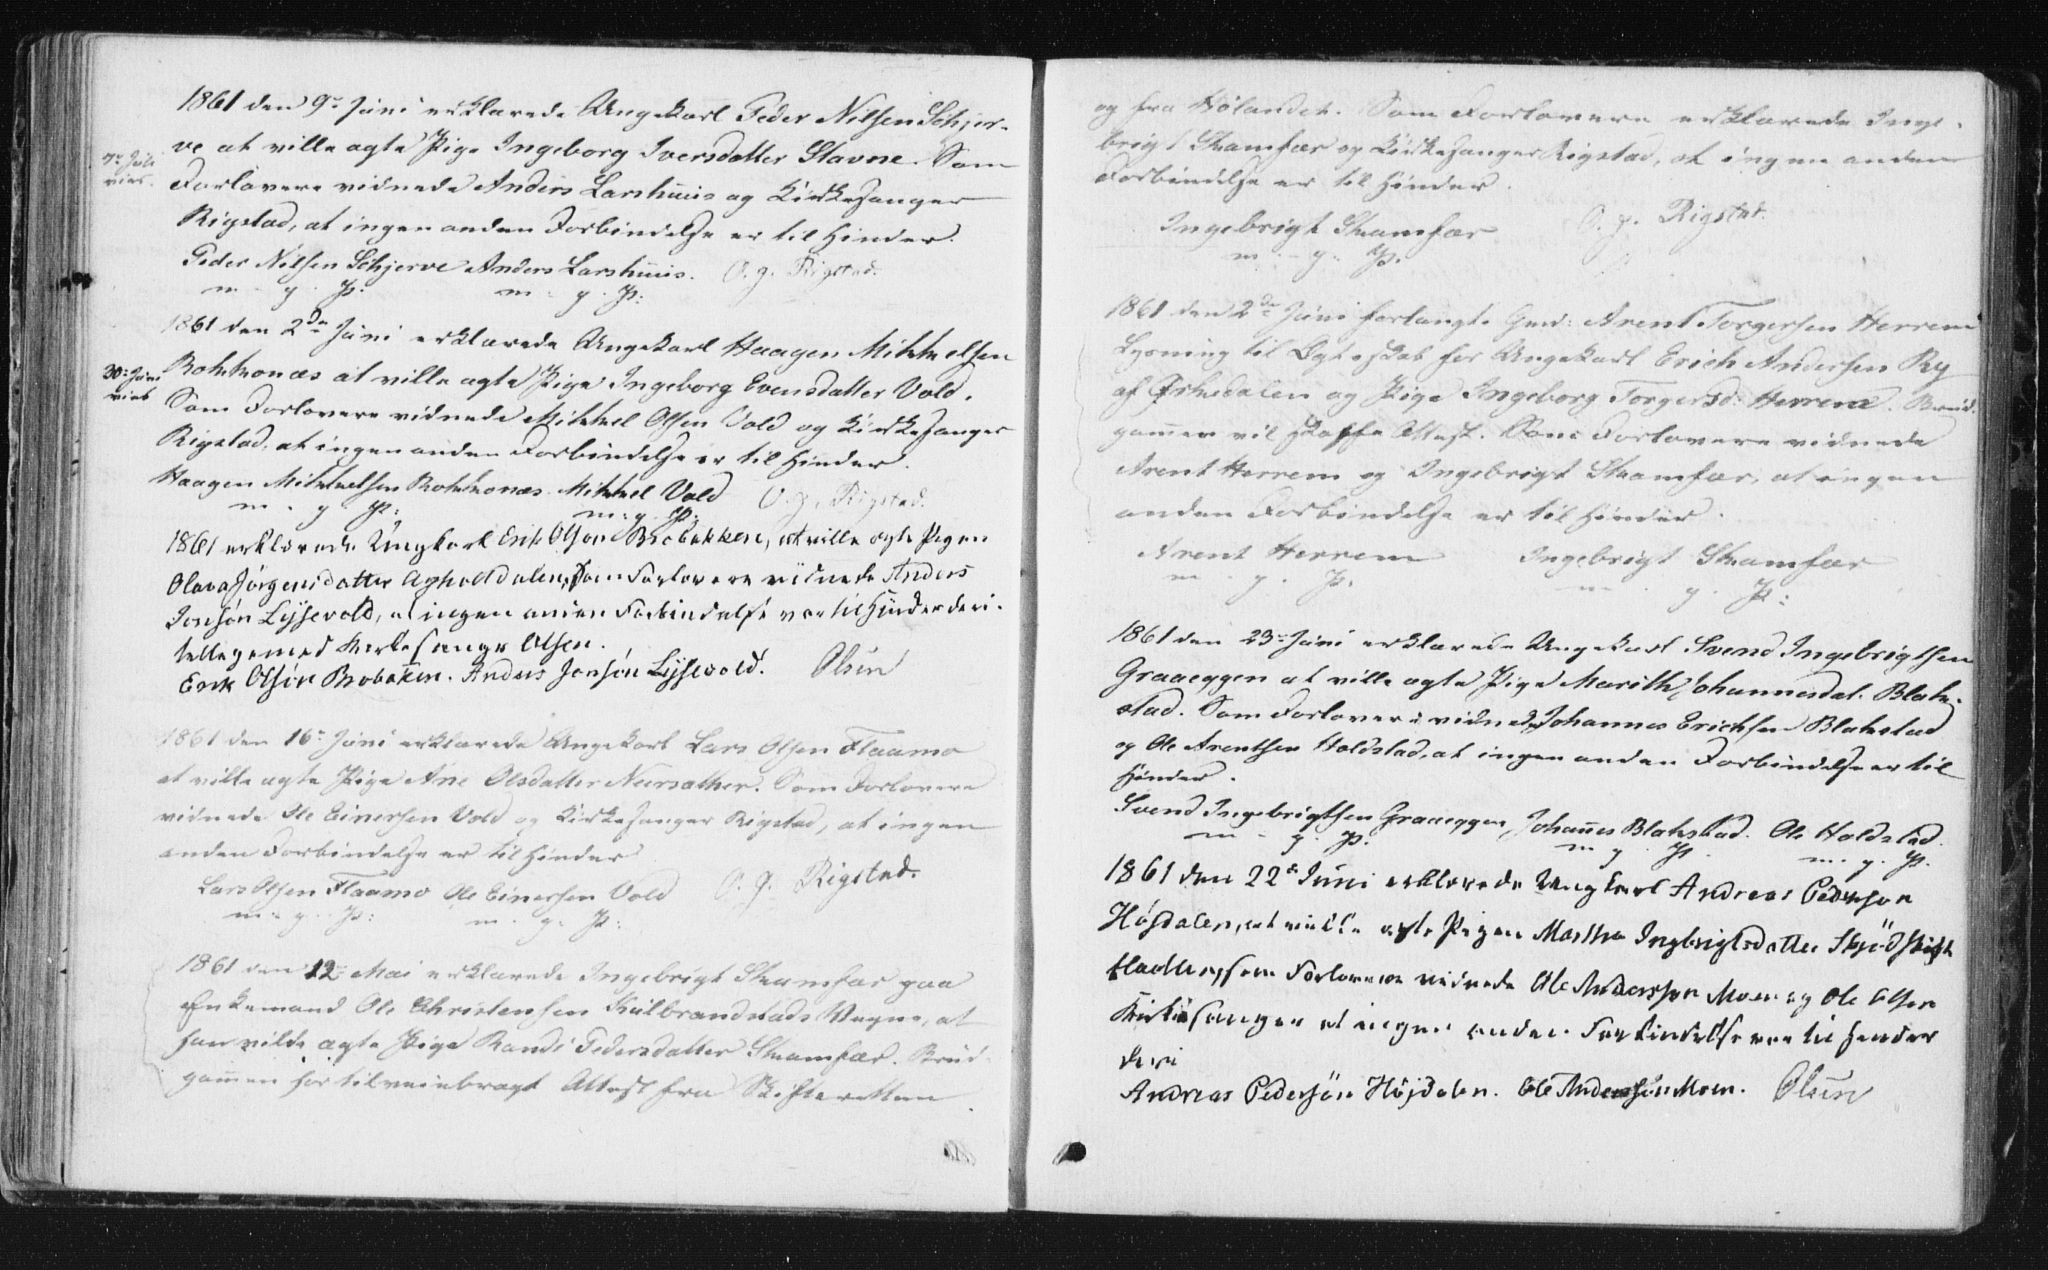 1861 den 9de Juni erklærede Ungekarl Peder Nilsen Schjer-
ve at ville ægte Pige Ingeborg Iversdatter Stavne. Som
7de Juli
viet.
Forlovere vidnede Anders Larshuus og Kirkesanger
Rigstad, at ingen anden Forbindelse er til Hinder.
Peder Nilsen Schjerve Anders Larshuus. O. J. Rigstad.
m. g. P. m. g. P:
1861 den 2den Juni erklærede Ungekarl Haagen Mikkelsen
30te Juni
viet
Rokkonæs at ville ægte Pige Ingeborg Evensdatter Vold.
Som Forlovere vidnede Mikkel Olsen Vold og Kirkesanger
Rigstad, at ingen anden Forbindelse er til Hinder.
Haagen Mikkelsen Rokkonæs. Mikkel Vold O. J. Rigstad.
m. g. P: m: g. P:
1861 erklærede Ungkarl Erik Olsøn Brobakken, at ville ægte Pigen
Olava Jørgensdatter Som Forlovere vidnede Anders
Jonsøn Lysevold, at ingen anden Forbindelse var til Hinder deri.
tillegemed Kirkesanger Olsen.
Erik Olsøn Brobakken. Anders Jonsøn Lysevold. Olsen
1861 den 16de Juni erklærede Ungekarl Lars Olsen Flaamo
at ville ægte Pige Ane Olsdatter Som Forlovere
vidnede Ole Einersen Vold og Kirkesanger Rigstad, at ingen
anden Forbindelse er til Hinder
Lars Olsen Flaamo Ole Einersen Vold O. J. Rigstad.
m. g. P: m. g. P:
1861 den 12te Mai erklærede Ingebrigt Skamfær paa
Enkemand Ole Christensen Kulbrandstads Vegne, at
han vilde ægte Pige Randi Pedersdatter Skamfær. Brud-
gommen har tilveiebragt Attest fra Skifteretten
og fra Hølandet. Som Forlovere erklærede Inge-
brigt Skamfær og Kirkesanger Rigstad, at ingen anden
Forbindelse er til Hinder.
Ingebrigt Skamfær O. J. Rigstad.
m. g. P.
1861 den 2den Juni forlangte Gmd: Arent Torgersen Herrem
Lysning til Ægteskab for Ungekarl Erich Andersen Ry
af Ørkedalen og Pige Ingeborg Torgersd: Herrem. Brud-
gommen vil skaffe Attest. Som Forlovere vidnede
Arent Herrem og Ingebrigt Skamfær, at ingen
anden Forbindelse er til Hinder.
Arent Herrem Ingebrigt Skamfær
m. g. P. m. g. P:
1861 den 23de Juni erklærede Ungekarl Svend Ingebrigtsen
Graaeggen at ville ægte Pige Marith Johannesdat. Blok-
stad. Som Forlovere vidnede Johannes Erichsen Blokstad
og Ole Arentsen Holdstad, at ingen anden Forbindelse er til
Hinder.
Svend Ingebrigtsen Graaeggen Johannes Blokstad. Ole Holdstad.
m. g. P. m. g. P. m. g. P.
1861 den 22de Juni erklærede Ungkarl Andreas Pedersøn
Højdalen, at ville ægte Pigen Martha Ingbrigtsdatter
som Forlovere vidnede Ole Andersøn Moen og Ole Olsen
Kirkesanger at ingen anden Forbindelse var til Hinder
deri
Andreas Pedersøn Højdalen. Ole Andersøn Moen. Olsen